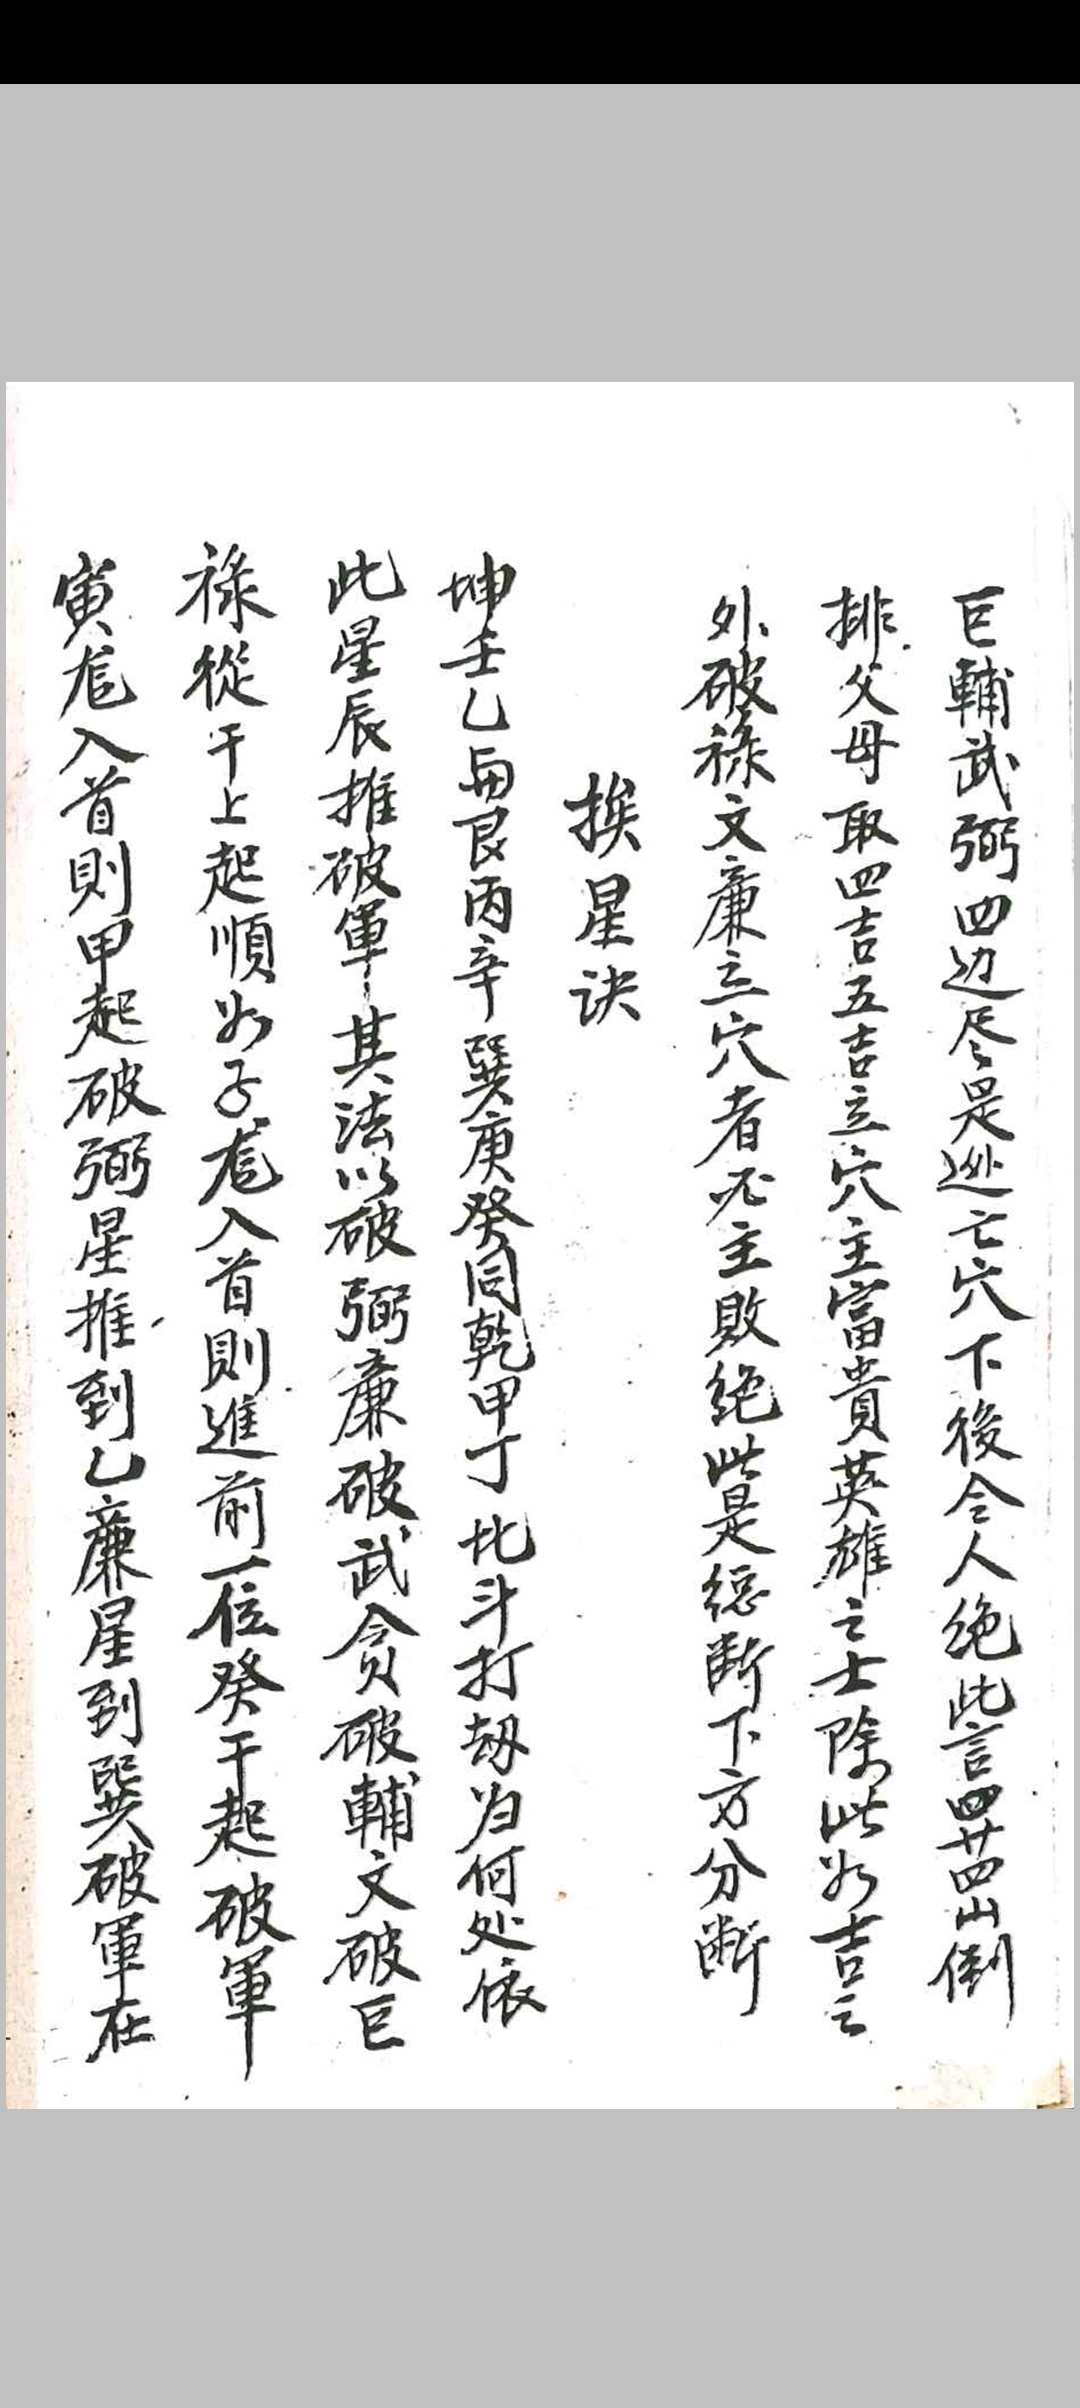 巨輔武弼四边尽是逃亡穴下後令人绝此言四廿四山倒
排父母取四吉五吉立穴主富貴英雄之士除此为吉之
外破祿文廉立穴者必主敗绝此是総断下方分断
挨星诀
坤壬乙与艮丙辛巽庚癸同乾甲丁北斗打劫为何处依
此星辰推破軍其法以破弼廉破武贪破輔文破巨
祿從干上起順如子龙入首則進前一位癸干起破軍
寅龙入首則甲起破弼星推到乙廉星到巽破軍在